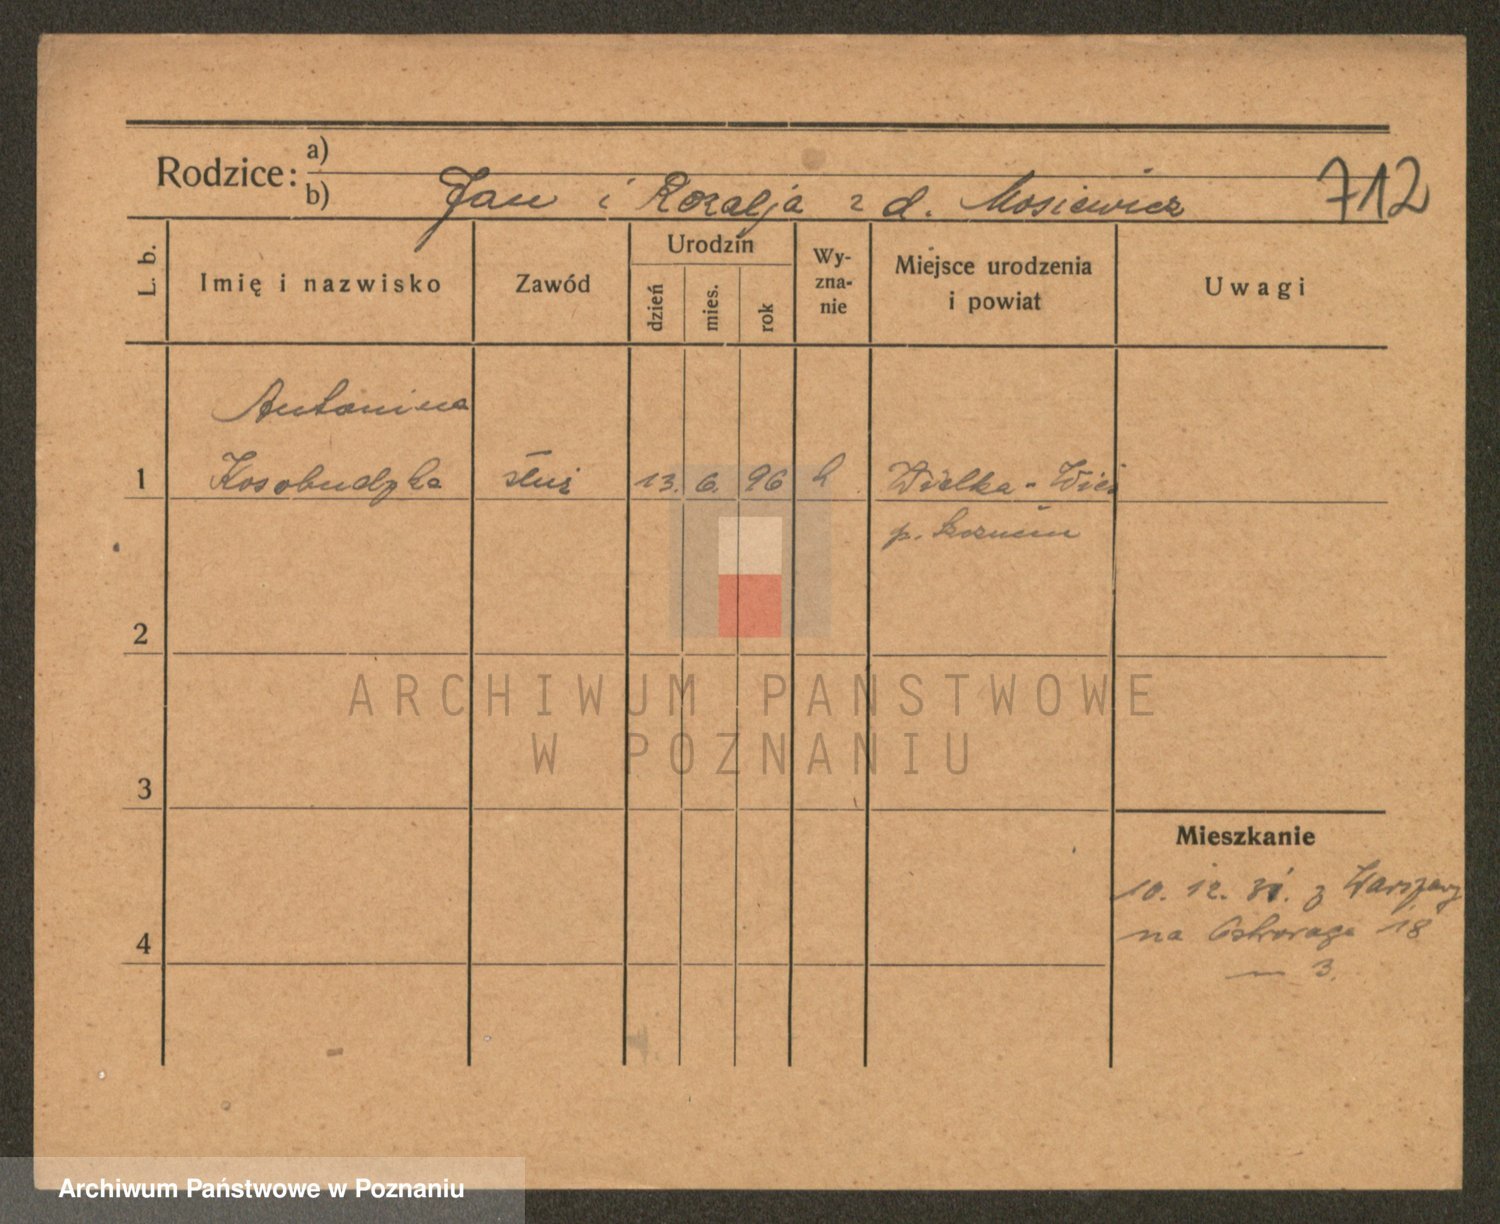 Rodzice:
a)
b) Jan i Rozalja z d. Mosiewicz
712
L. b.
Imię i nazwisko
Zawód
Urodzin
dzień
mies.
rok
Wy-
zna-
nie
Miejsce urodzenia
i powiat
Uwagi
Antonina
1 Kosobudzka służ 13. 6. 96 Wielka - Wieś
p.
2
ARCHIWUM PAŃSTWOWE
W POZNANIU
3
Mieszkanie
10. 12. 31. z Warszawy
na Ostroroga 18
m 3.
4
Archiwum Państwowe w Poznaniu